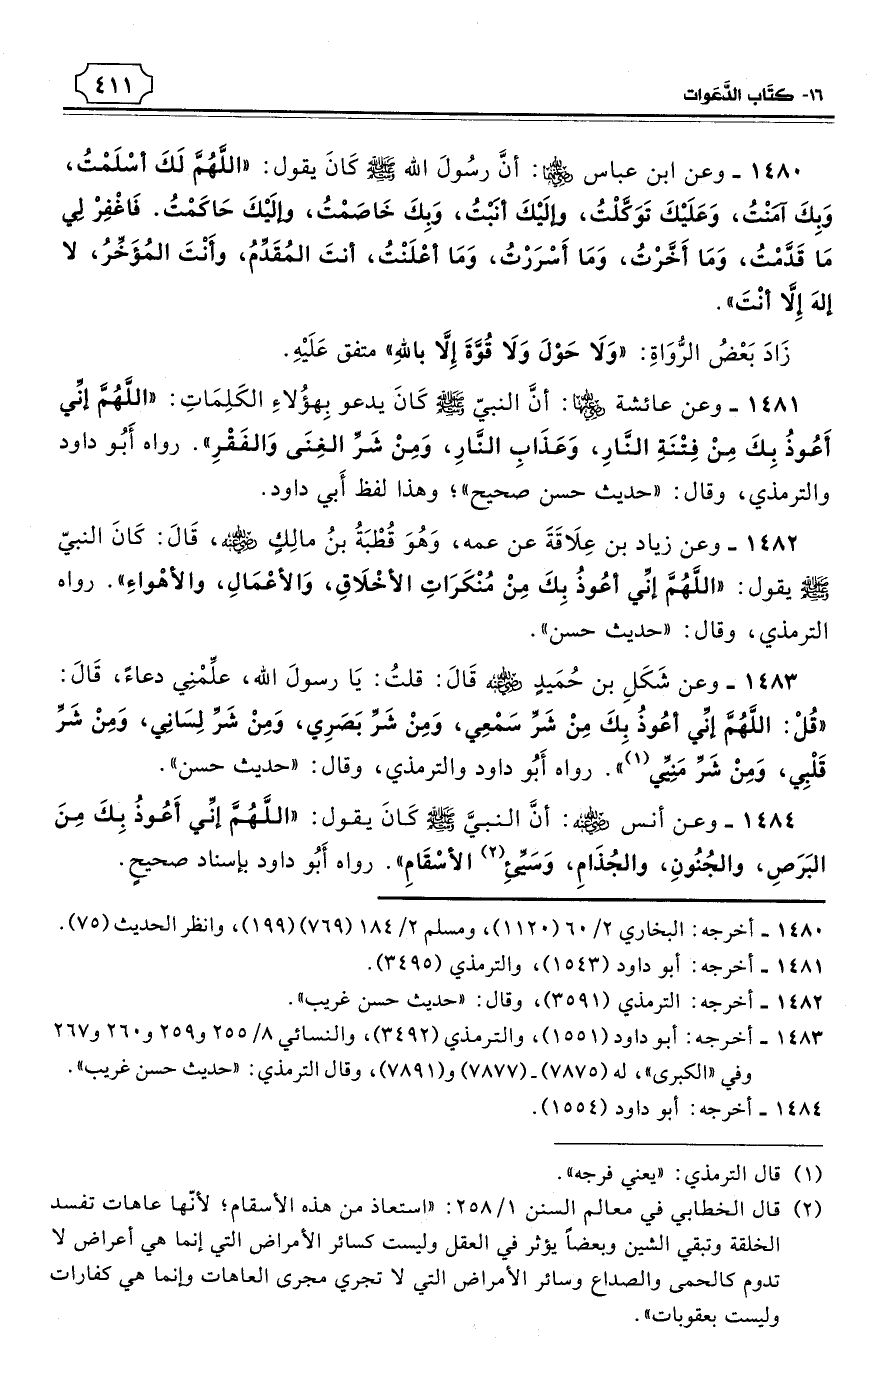 ١٦- كتَاب الدَّعَوات
٤١١
١٤٨٠ ـ وعن ابن عباس ﵄: أنَّ رسُولَ الله ﷺ كَانَ يقول: «اللَّهُمَّ لَكَ أسْلَمْتُ،
وَبِكَ آمَنْتُ، وَعَلَيْكَ تَوَكَّلْتُ، وإلَيْكَ أنَبْتُ، وَبِكَ خَاصَمْتُ، وإلَيْكَ حَاكَمْتُ. فَاغْفِرْ لِي
مَا قَدَّمْتُ، وَمَا أَخَّرْتُ، وَمَا أَسْرَرْتُ، وَمَا أعْلَنْتُ، أنتَ المُقَدِّمُ، وأَنْتَ المُؤَخِّرُ، لا
إلهَ إِلَّا أنْتَ».
زَادَ بَعْضُ الرُّوَاةِ: «وَلَا حَوْلَ وَلَا قُوَّةَ إِلَّا باللهِ» متفق عَلَيْهِ.
١٤٨١ ـ وعن عائشة ﵂: أنَّ النبيّ ﷺ كَانَ يدعو بِهؤُلاءِ الكَلِمَاتِ: «اللَّهُمَّ إنِّي
أَعُوذُ بِكَ مِنْ فِتْنَةِ النَّارِ، وَعَذَابِ النَّارِ، وَمِنْ شَرِّ الغِنَى وَالفَقْرِ». رواه أَبُو داود
والترمذي، وقال: «حديث حسن صحيح»؛ وهذا لفظ أَبي داود.
١٤٨٢ ـ وعن زياد بن عِلَاقَةَ عن عمه، وَهُوَ قُطْبَةُ بنُ مالِكٍ ﵁، قَالَ: كَانَ النبيّ
ﷺ يقول: «اللَّهُمَّ إنِّي أعُوذُ بِكَ مِنْ مُنْكَرَاتِ الأخْلَاقِ، وَالأعْمَالِ، والأهْواءِ». رواه
الترمذي، وقال: «حديث حسن».
١٤٨٣ ـ وعن شَكَلِ بن حُمَيدٍ ﵁ قَالَ: قلتُ: يَا رسولَ الله، علِّمْنِي دعاءً، قَالَ:
«قُلْ: اللَّهُمَّ إنِّي أعُوذُ بِكَ مِنْ شَرِّ سَمْعِي، وَمِنْ شَرِّ بَصَرِي، وَمِنْ شَرِّ لِسَانِي، وَمِنْ شَرِّ
قَلْبِي، وَمِنْ شَرِّ مَنِيِّي(١)». رواه أَبُو داود والترمذي، وقال: «حديث حسن».
١٤٨٤ ـ وعن أنس ﵁: أنَّ النبيَّ ﷺ كَانَ يقول: «اللَّهُمَّ إنِّي أَعُوذُ بِكَ مِنَ
البَرَصِ، والجُنُونِ، والجُذَامِ، وَسَيِّئِ(٢) الأسْقَامِ». رواه أَبُو داود بإسناد صحيحٍ.
١٤٨٠ ـ أخرجه: البخاري ٢/ ٦٠ (١١٢٠)، ومسلم ٢/ ١٨٤ (٧٦٩) (١٩٩)، وانظر الحديث (٧٥).
١٤٨١ ـ أخرجه: أبو داود (١٥٤٣)، والترمذي (٣٤٩٥).
١٤٨٢ ـ أخرجه: الترمذي (٣٥٩١)، وقال: «حديث حسن غريب».
١٤٨٣ ـ أخرجه: أبو داود (١٥٥١)، والترمذي (٣٤٩٢)، والنسائي ٨/ ٢٥٥ و٢٥٩ و٢٦٠ و٢٦٧
وفي «الكبرى»، له (٧٨٧٥) ـ (٧٨٧٧) و(٧٨٩١)، وقال الترمذي: «حديث حسن غريب».
١٤٨٤ ـ أخرجه: أبو داود (١٥٥٤).
(١) قال الترمذي: «يعني فرجه».
(٢) قال الخطابي في معالم السنن ١/ ٢٥٨: «استعاذ من هذه الأسقام؛ لأنّها عاهات تفسد
الخلقة وتبقي الشين وبعضاً يؤثر في العقل وليست كسائر الأمراض التي إنما هي أعراض لا
تدوم كالحمى والصداع وسائر الأمراض التي لا تجري مجرى العاهات وإنما هي كفارات
وليست بعقوبات».